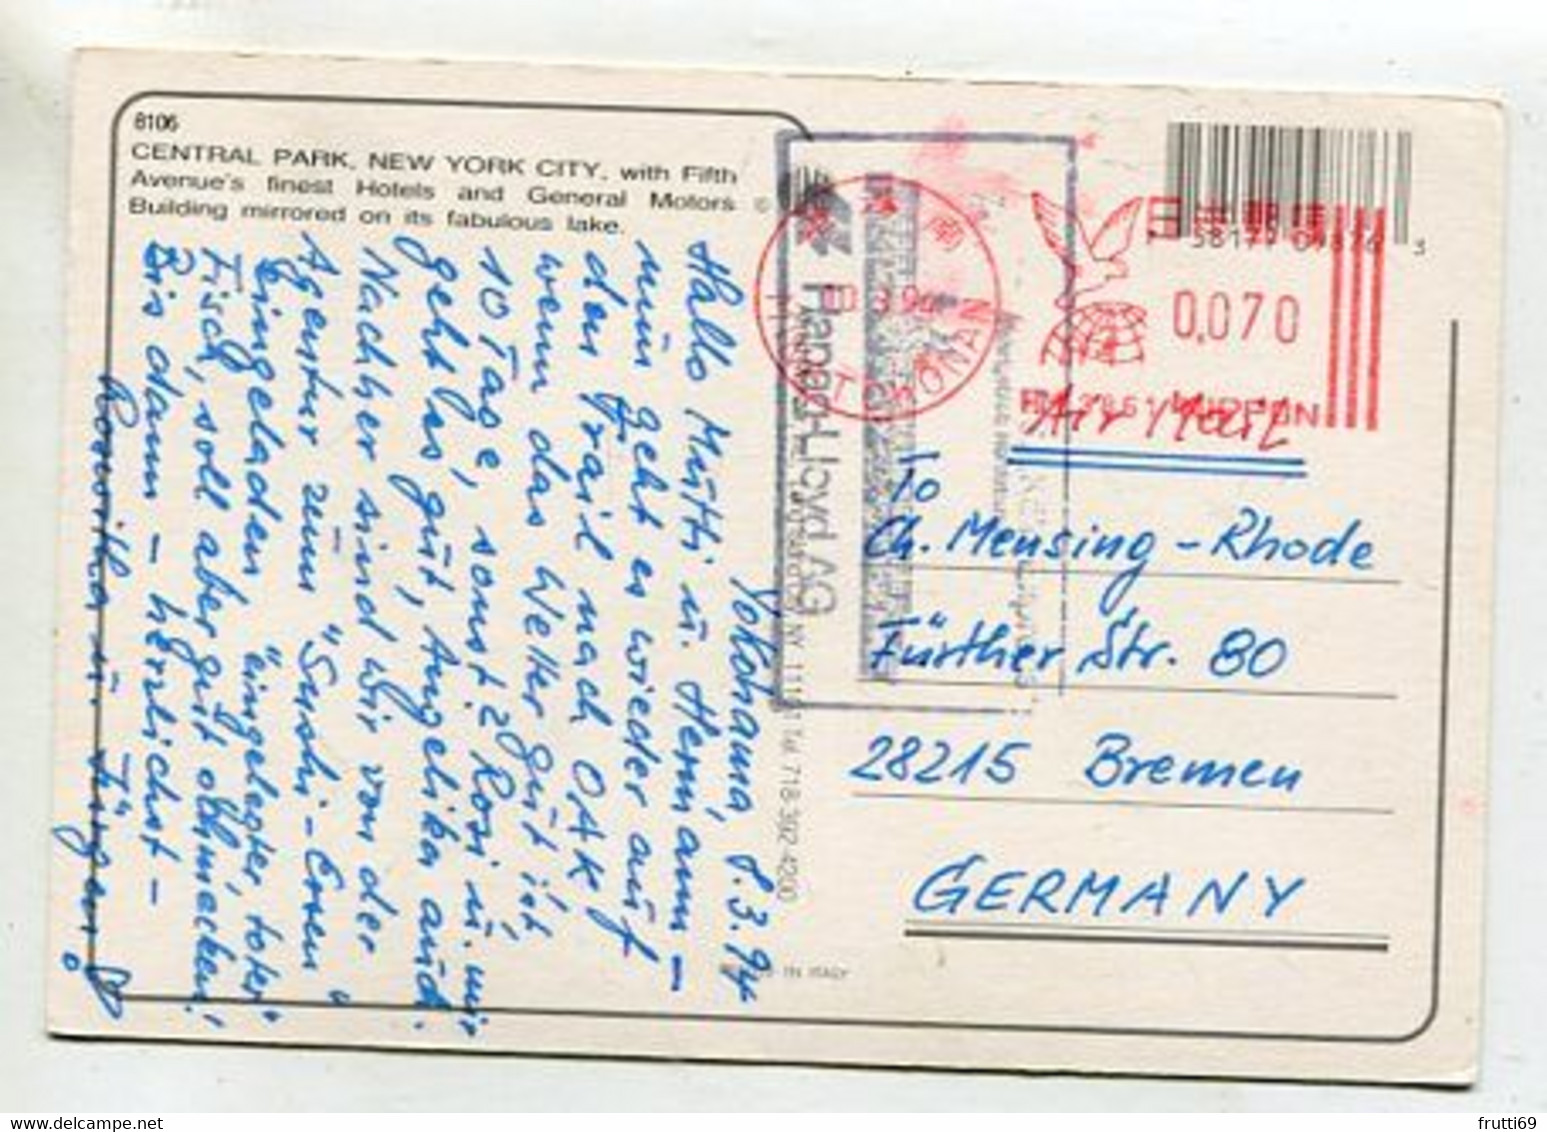 8106
CENTRAL PARK, NEW YORK CITY, with Fifth
Avenue's finest Hotels and General Motors
Building mirrored on its fabulous lake.
Yokohama, 8.3.94
Hallo Mutti u. Hermann –
nun geht es wieder auf
den Trail nach OAK
wenn das Wetter gut ist
10 Tage, sonst 2. Rosi u. mir
geht es gut, Angelika auch.
Nachher sind wir von der
Agentur zum "Sushi-Essen"
eingeladen "eingelegter, roter"
Fisch, soll aber gut schmecken!
Bis dann – herzlichst –
Roswitha u. Jürgen
Hapag-Lloyd AG
NY 11101 Tel. 718-392-4200
IN ITALY
日本郵便
0,070
NIPPON
KOHOKU
Air Mail
To
Ch. Mensing-Rhode
Fürther Str. 80
28215 Bremen
GERMANY
frutti69